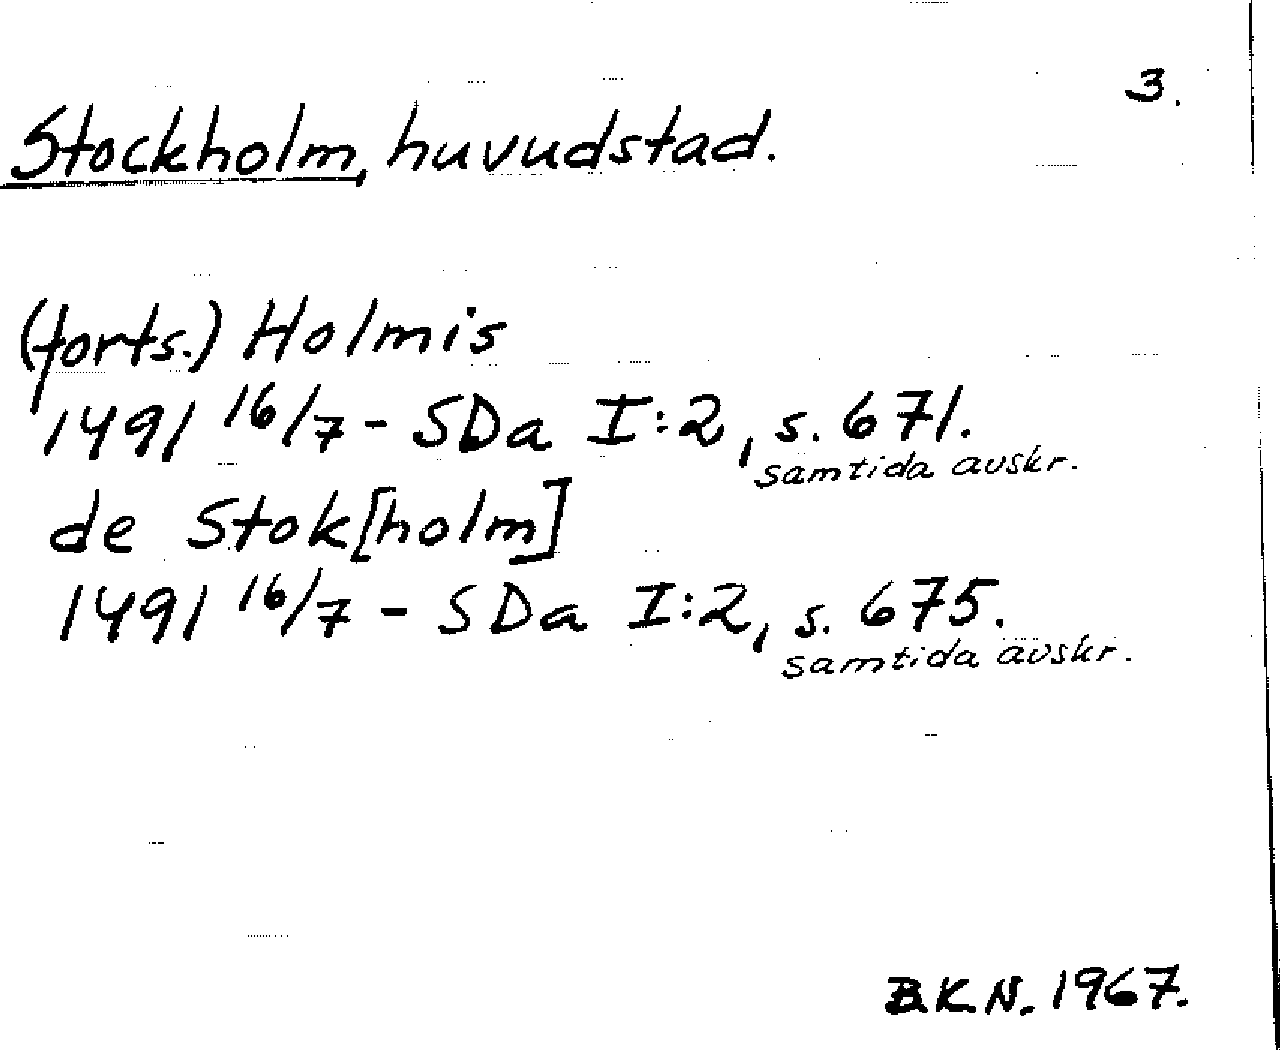 3.
Stockholm, huvudstad.
(forts.) Holmis
1491 16/7 - SDa I:2, s. 671.
samtida avskr.
de Stok[holm]
1491 16/7 - SDa I:2, s. 675.
samtida avskr.
B.K.N. 1967.